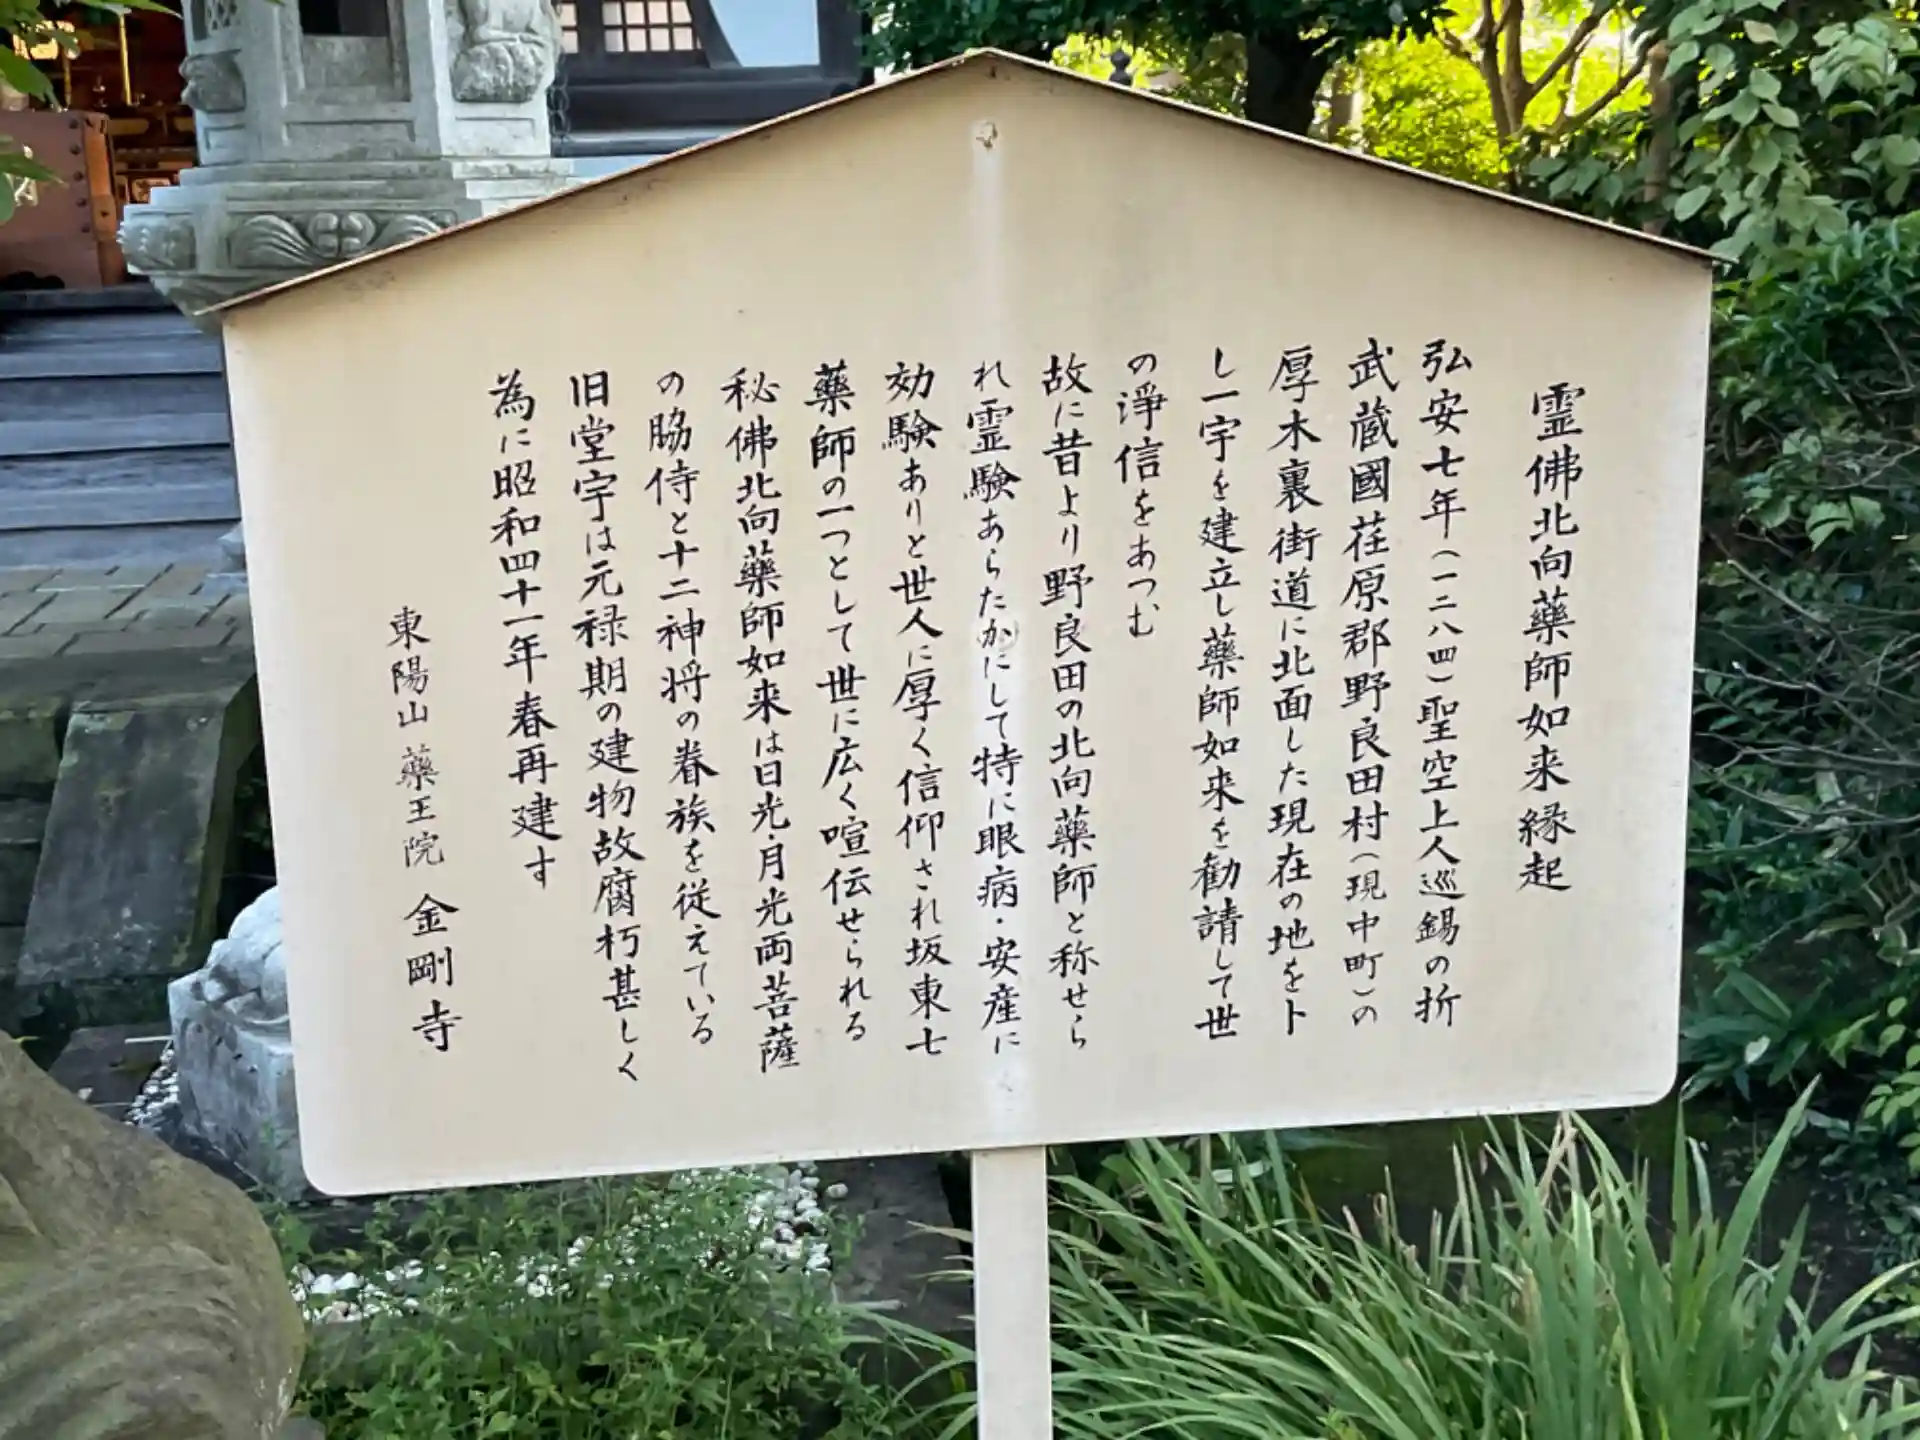 霊佛北向藥師如来縁起
弘安七年(一二八四)聖空上人巡錫の折
武蔵國荏原郡野良田村(現中町)の
厚木裏街道に北面した現在の地をト
し一宇を建立し藥師如来を勧請して世
の淨信をあつむ
故に昔より野良田の北向藥師と称せら
れ霊験あらたかにして特に眼病・安産に
効験ありと世人に厚く信仰され坂東七
藥師の一つとして世に広く喧伝せられる
秘佛北向藥師如来は日光・月光両菩薩
の脇侍と十二神将の眷族を従えている
旧堂宇は元禄期の建物故腐朽甚しく
為に昭和四十一年春再建す
東陽山 藥王院 金剛寺